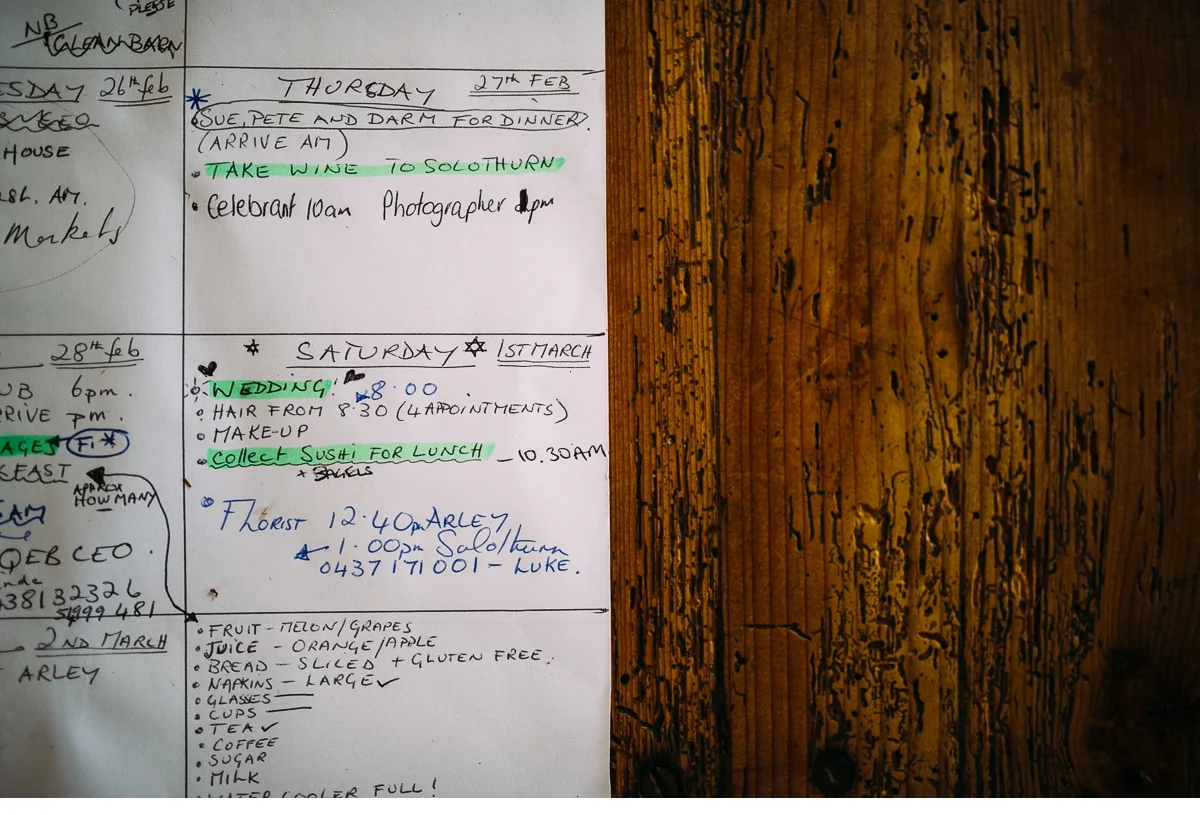 PLEASE
NB
CLEAN BARN
SDAY 26th feb
HOUSE
AM.
Markets
THURSDAY 27TH FEB
SUE, PETE AND DARM FOR DINNER.
(ARRIVE AM)
TAKE WINE TO SOLOTHURN
Celebrant 10am Photographer 1pm
28th feb
UB 6pm.
RIVE pm.
AGES Fi *
KEAST
APPROX
HOW MANY
QEB CEO.
38132326
481
2ND MARCH
ARLEY
SATURDAY 1ST MARCH
WEDDING! 8.00
HAIR FROM 8.30 (4 APPOINTMENTS)
MAKE-UP
COLLECT SUSHI FOR LUNCH - 10.30AM
+ BAGELS
FLORIST 12.40pm ARLEY
1.00pm Solothurn
0437 171 001 - LUKE.
FRUIT - MELON/GRAPES
JUICE - ORANGE/APPLE
BREAD - SLICED + GLUTEN FREE.
NAPKINS - LARGE ✓
GLASSES
CUPS
TEA ✓
COFFEE
SUGAR
MILK
WATER COOLER FULL!